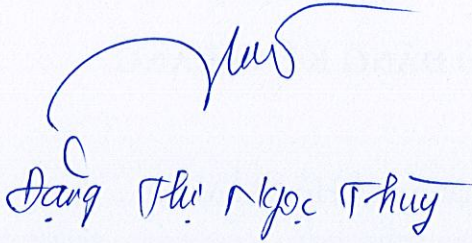 Đặng Thị Ngọc Thùy